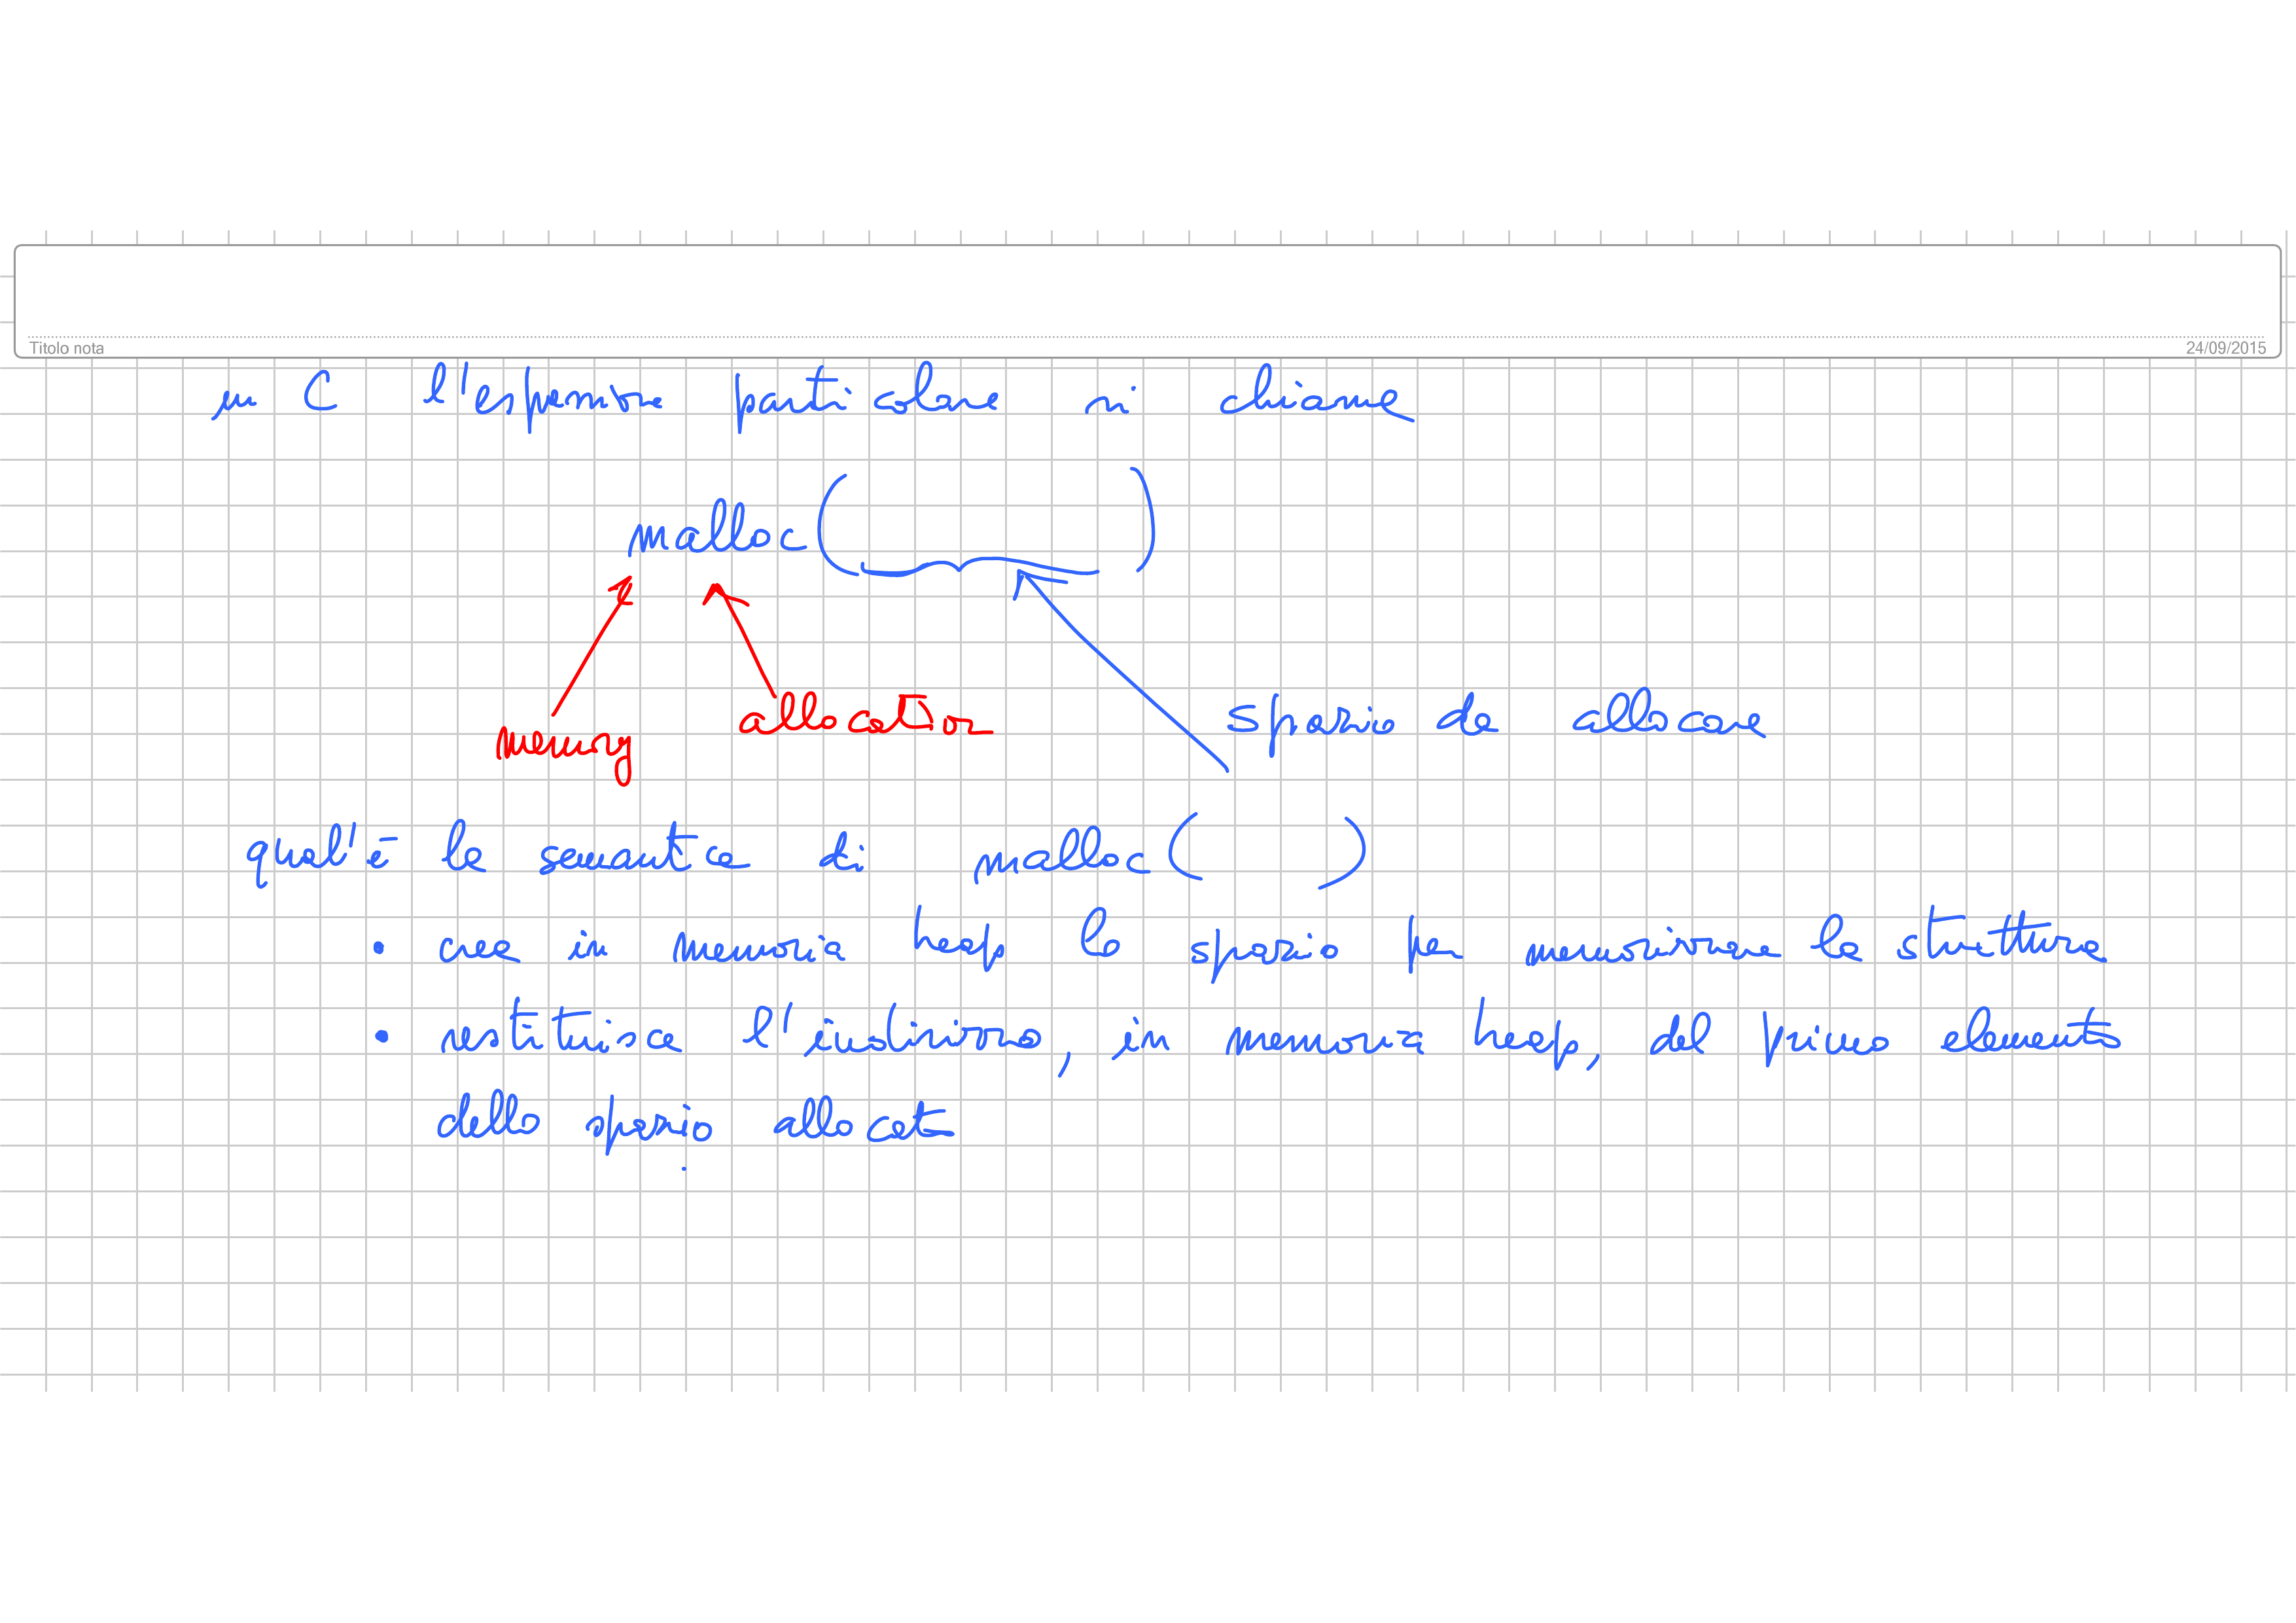 Titolo nota
24/09/2015
in C l'espressione particolare si chiama
malloc( )
memory allocation spazio da allocare
qual'è la semantica di malloc( )
• crea in memoria heap lo spazio per memorizzare la struttura
• restituisce l'indirizzo, in memoria heap, del primo elemento
dello spazio allocato